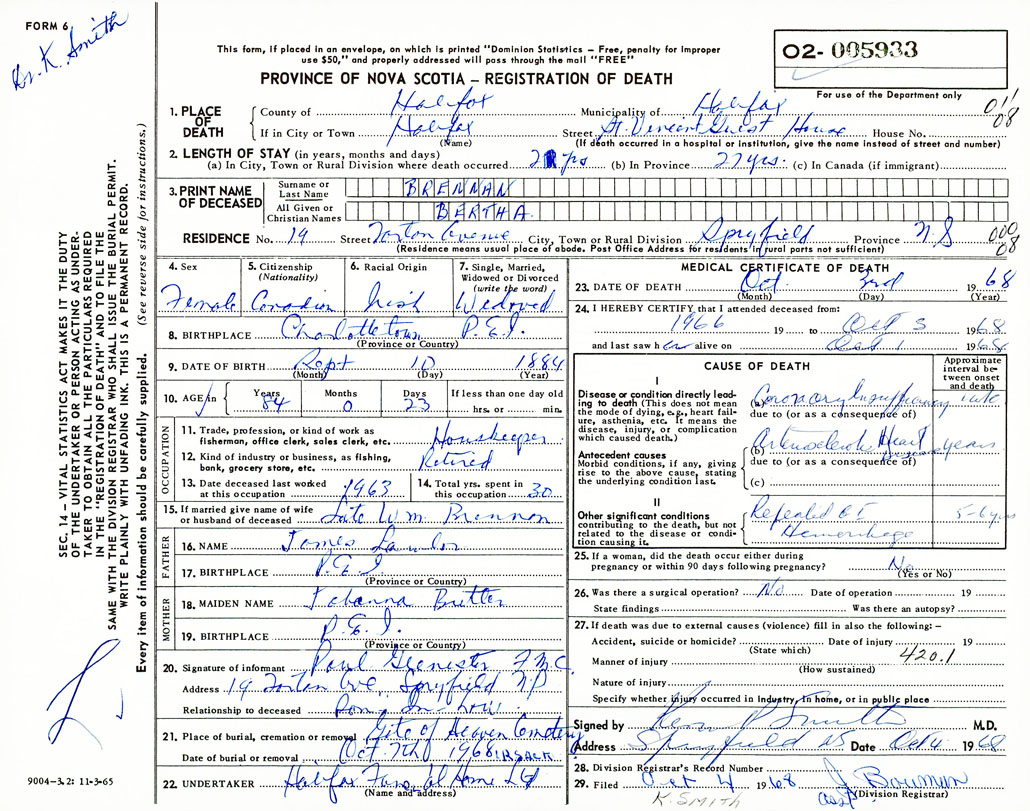 FORM 6
Dr. K. Smith
This form, if placed in an envelope, on which is printed "Dominion Statistics – Free, penalty for improper
use $50," and properly addressed will pass through the mail "FREE"
PROVINCE OF NOVA SCOTIA – REGISTRATION OF DEATH
02- 005933
For use of the Department only
SEC. 14 – VITAL STATISTICS ACT MAKES IT THE DUTY
OF THE UNDERTAKER OR PERSON ACTING AS UNDER-
TAKER TO OBTAIN ALL THE PARTICULARS REQUIRED
IN THE "REGISTRATION OF DEATH" AND TO FILE THE
SAME WITH THE DIVISION REGISTRAR WHO SHALL ISSUE THE BURIAL PERMIT.
WRITE PLAINLY WITH UNFADING INK. THIS IS A PERMANENT RECORD.
Every item of information should be carefully supplied. (See reverse side for instructions.)
1. PLACE OF DEATH County of Halifax Municipality of Halifax 011
If in City or Town Halifax Street St. Vincent Guest House House No. 08
(Name) (If death occurred in a hospital or institution, give the name instead of street and number)
2. LENGTH OF STAY (in years, months and days)
(a) In City, Town or Rural Division where death occurred yrs (b) In Province 27 yrs. (c) In Canada (if immigrant)
3. PRINT NAME OF DECEASED Surname or Last Name BRENNAN
All Given or Christian Names BERTHA
RESIDENCE No. 19 Street Torton Avenue City, Town or Rural Division Spryfield Province NS 000
(Residence means usual place of abode. Post Office Address for residents in rural parts not sufficient) 08
4. Sex 5. Citizenship (Nationality) 6. Racial Origin 7. Single, Married, Widowed or Divorced (write the word)
Female Canadian Irish Widowed
8. BIRTHPLACE Charlottetown P.E.I.
(Province or Country)
9. DATE OF BIRTH Sept 10 1884
(Month) (Day) (Year)
10. AGE in Years Months Days If less than one day old
84 0 23 hrs. or min.
OCCUPATION
11. Trade, profession, or kind of work as
fisherman, office clerk, sales clerk, etc. Housekeeper
12. Kind of industry or business, as fishing,
bank, grocery store, etc. Retired
13. Date deceased last worked
at this occupation 1963
14. Total yrs. spent in
this occupation 30
15. If married give name of wife
or husband of deceased Late Wm. Brennan
FATHER
16. NAME James Lawlor
17. BIRTHPLACE P.E.I.
(Province or Country)
MOTHER
18. MAIDEN NAME Johanna
19. BIRTHPLACE P.E.I.
(Province or Country)
20. Signature of informant Paul
Address 19 Torton Ave, Spryfield
Relationship to deceased In Law
21. Place of burial, cremation or removal Gate of Heaven Cemetery
Date of burial or removal Oct 7th 1968
22. UNDERTAKER Halifax Funeral Home Ltd
(Name and address)
9004-3.2: 11-3-65
MEDICAL CERTIFICATE OF DEATH
23. DATE OF DEATH Oct. 3rd 1968
(Month) (Day) (Year)
24. I HEREBY CERTIFY that I attended deceased from:
1966 19 to Oct 3 1968
and last saw her alive on Oct 1 1968
CAUSE OF DEATH
Approximate interval between onset and death
I
Disease or condition directly lead-
ing to death (This does not mean
the mode of dying, e.g., heart fail-
ure, asthenia, etc. It means the
disease, injury, or complication
which caused death.)
(a) Coronary Insufficiency 1 wk
due to (or as a consequence of)
Antecedent causes
Morbid conditions, if any, giving
rise to the above cause, stating
the underlying condition last.
(b) Heart years
due to (or as a consequence of)
(c)
II
Other significant conditions
contributing to the death, but not
related to the disease or condi-
tion causing it.
Repeated GI 5-6 yrs
Hemorrhage
25. If a woman, did the death occur either during
pregnancy or within 90 days following pregnancy? No
(Yes or No)
26. Was there a surgical operation? No Date of operation 19
State findings Was there an autopsy?
27. If death was due to external causes (violence) fill in also the following: –
Accident, suicide or homicide? Date of injury 19
(State which) 420.1
Manner of injury
(How sustained)
Nature of injury
Specify whether injury occurred in industry, in home, or in public place
Signed by Smith M.D.
Address NS Date Oct 4 1968
28. Division Registrar's Record Number
29. Filed Oct 4 1968 J Bowman
K. SMITH Asst (Division Registrar)